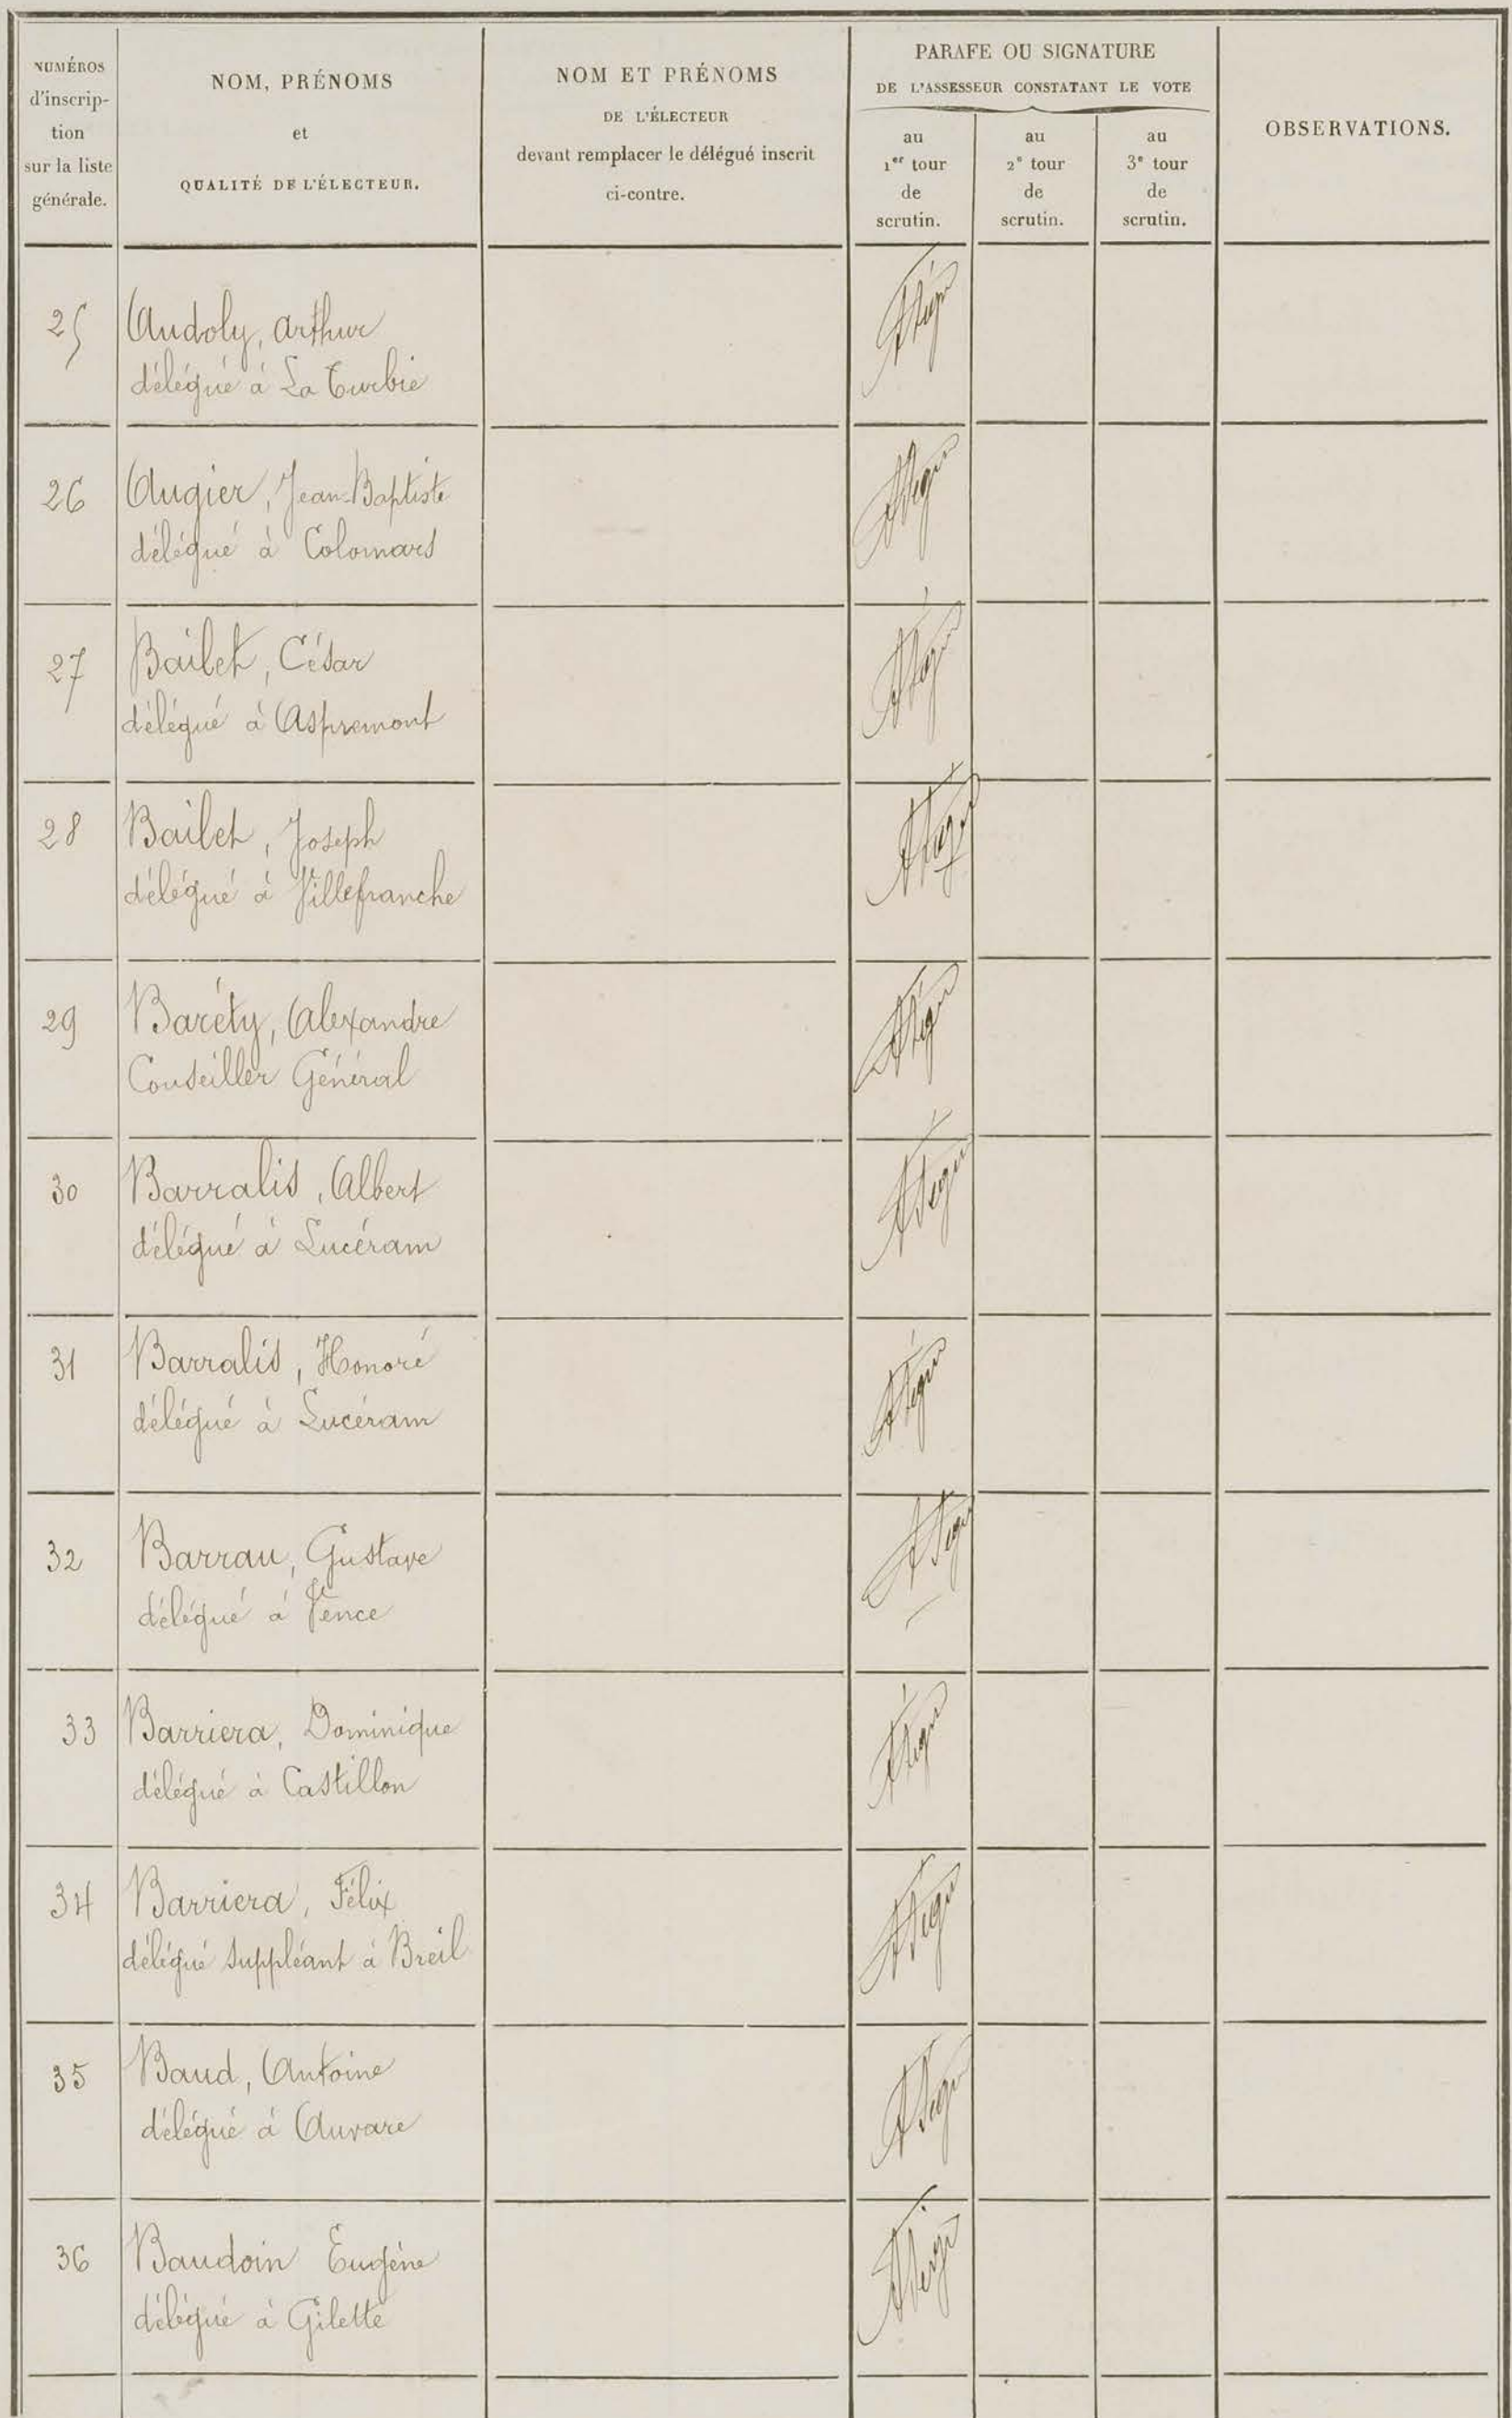 NUMÉROS
d'inscrip-
tion
sur la liste
générale.
NOM, PRÉNOMS
et
QUALITÉ DE L'ÉLECTEUR.
NOM ET PRÉNOMS
DE L'ÉLECTEUR
devant remplacer le délégué inscrit
ci-contre.
PARAFE OU SIGNATURE
DE L'ASSESSEUR CONSTATANT LE VOTE
au
1er tour
de
scrutin.
au
2e tour
de
scrutin.
au
3e tour
de
scrutin.
OBSERVATIONS.
25 Audoly, Arthur
délégué à La Turbie
26 Augier, Jean-Baptiste
délégué à Colomars
27 Bailet, César
délégué à Aspremont
28 Bailet, Joseph
délégué à Villefranche
29 Baréty, Alexandre
Conseiller Général
30 Barralis, Albert
délégué à Lucéram
31 Barralis, Honoré
délégué à Lucéram
32 Barrau, Gustave
délégué à Vence
33 Barriera, Dominique
délégué à Castillon
34 Barriera, Félix
délégué suppléant à Breil
35 Baud, Antoine
délégué à Auvare
36 Baudoin Eugène
délégué à Gilette